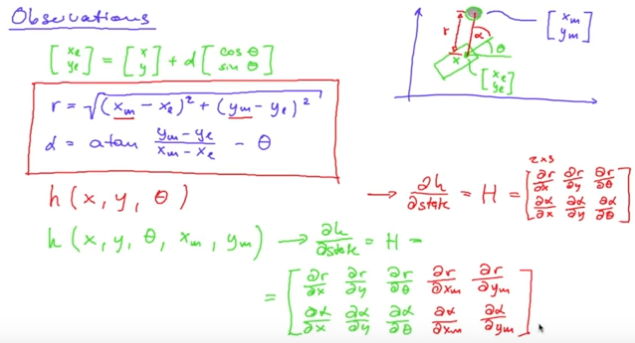 Observations
[x_e y_e] = [x y] + d [cos θ sin θ]
r = √((x_m - x_e)² + (y_m - y_e)²)
α = atan (y_m - y_e)/(x_m - x_e) - θ
r α θ x
[x_m y_m]
[x_e y_e]
h(x, y, θ)
→ ∂h/∂state = H = [∂r/∂x ∂r/∂y ∂r/∂θ
∂α/∂x ∂α/∂y ∂α/∂θ]
2x3
h(x, y, θ, x_m, y_m) → ∂h/∂state = H =
= [∂r/∂x ∂r/∂y ∂r/∂θ ∂r/∂x_m ∂r/∂y_m
∂α/∂x ∂α/∂y ∂α/∂θ ∂α/∂x_m ∂α/∂y_m]